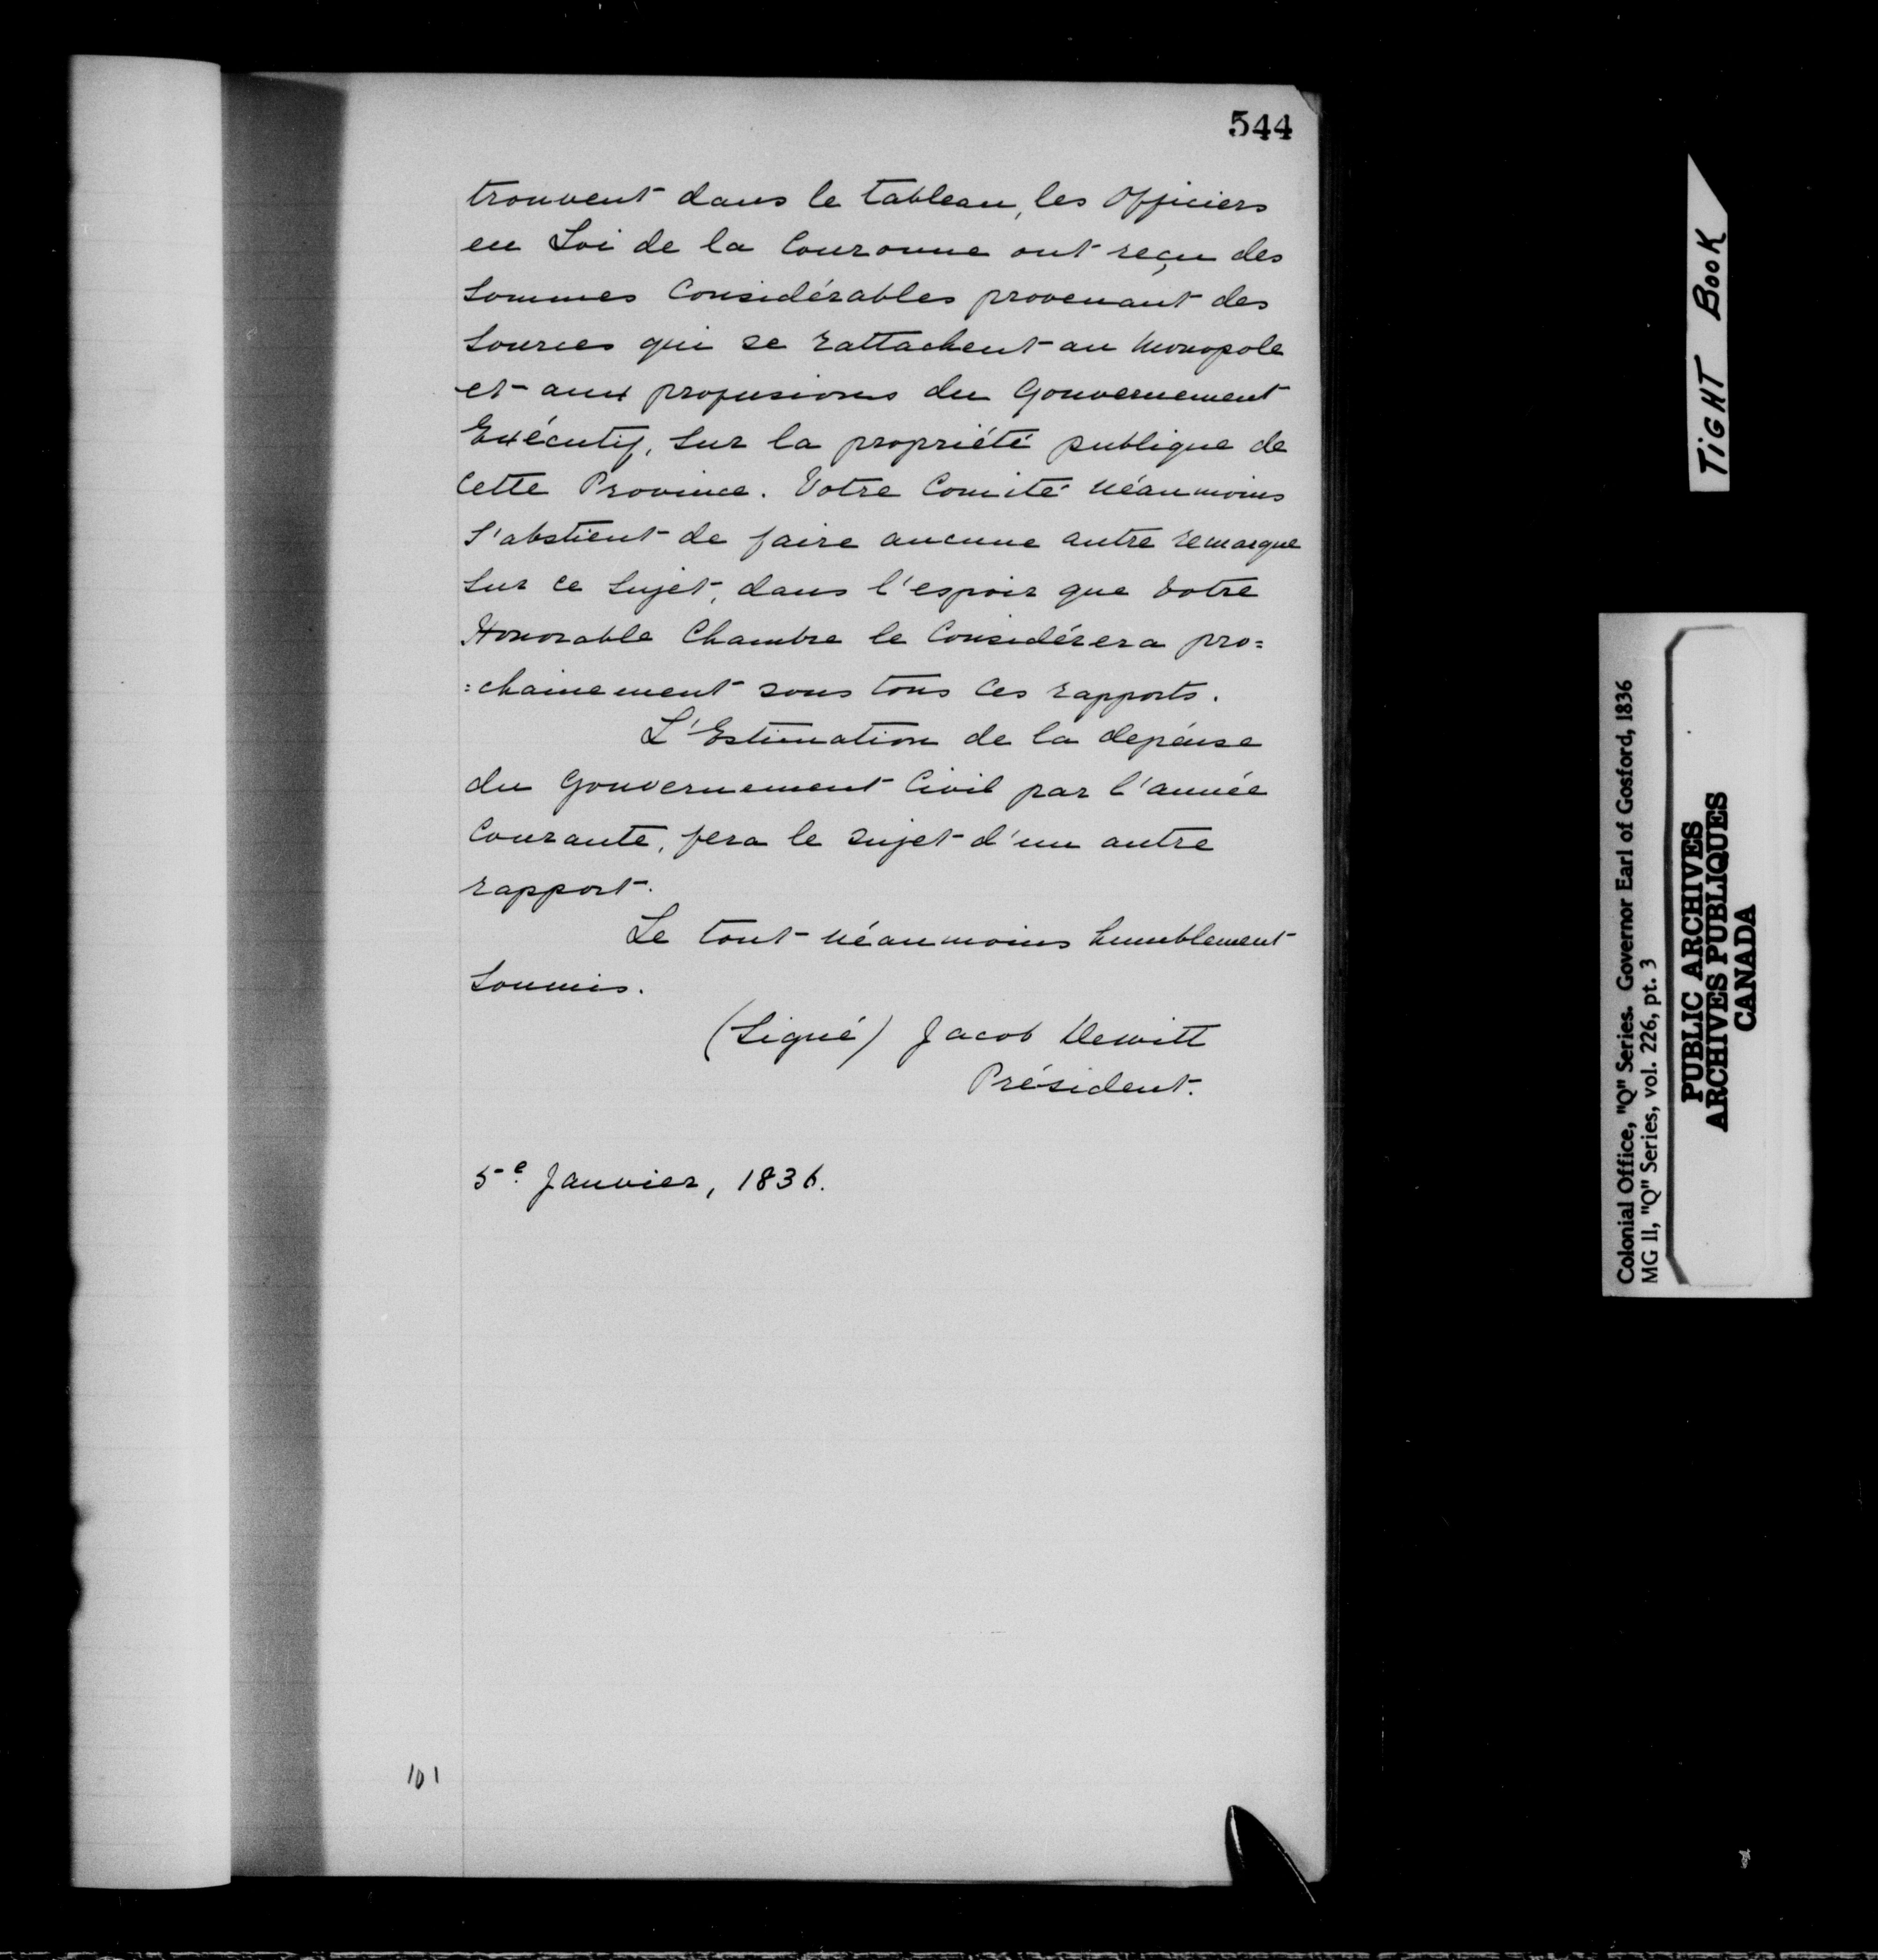 544
trouvent dans le tableau, les Officiers
en Loi de la Couronne ont reçu des
Sommes Considérables provenant des
Sources qui se rattachent au Monopole
et aux profusions du Gouvernement
Exécutif, Sur la propriété publique de
Cette Province. Votre Comité néanmoins
S'abstient de faire aucune autre remarque
Sur ce Sujet, dans l'espoir que Votre
Honorable Chambre le Considérera pro=
=chainement sous tous ces rapports.
L'Estimation de la depénse
du Gouvernement Civil par l'année
Courante, fera le sujet d'un autre
rapport.
Le tout néanmoins humblement
Soumis.
(Signé) Jacob Dewitt
Président.
5e. Janvier, 1836.
101
TiGHT BOOK
Colonial Office, "Q" Series. Governor Earl of Gosford, 1836
MG 11, "Q" Series, vol. 226, pt. 3
PUBLIC ARCHIVES
ARCHIVES PUBLIQUES
CANADA